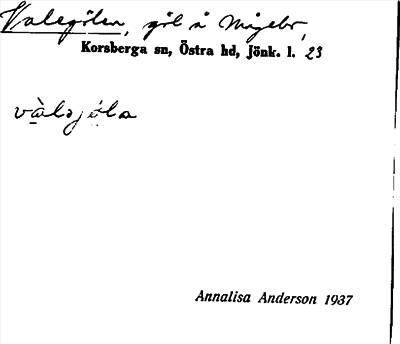 Valegölen, göl å Mågebo,
Korsberga sn, Östra hd, Jönk. l. 23
Annalisa Anderson 1937